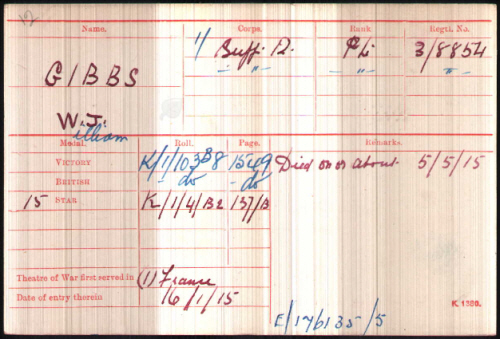 12
Name. Corps. Rank Regtl. No.
GIBBS 1/ Suff. R. Pte 3/8854
" " " "
W.J.
illiam
Medal. Roll. Page. Remarks.
VICTORY K/1/103B8 1549 Died on or about. 5/5/15
BRITISH - do - do
15 STAR K/1/4/B2 137/B
Theatre of War first served in (1) France
Date of entry therein 16/1/15
E/1/76135/5
K 1380.